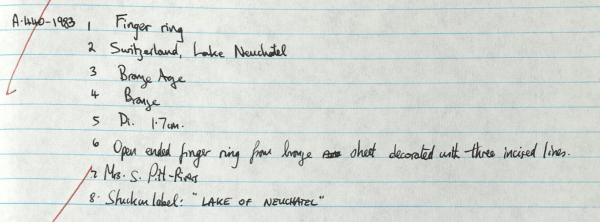 A.440-1983 1 Finger ring
2 Switzerland, Lake Neuchatel
3 Bronze Age
4 Bronze
5 Di. 1.7cm.
6 Open ended finger ring from bronze sheet decorated with three incised lines.
7 Mrs. S. Pitt-Rivers
8. Stuck on label: "LAKE OF NEUCHATEL"